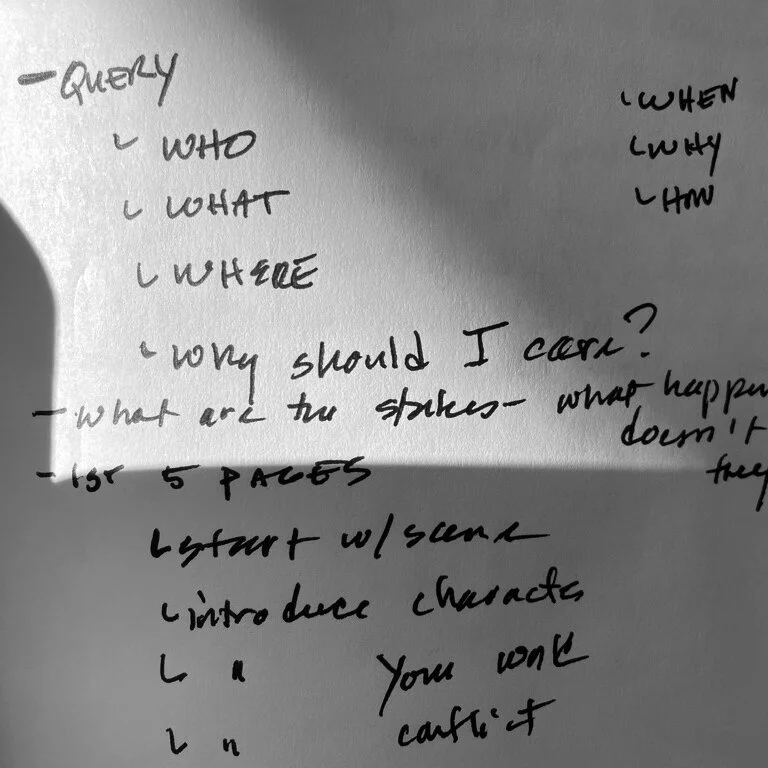 - QUERY
WHO
WHAT
WHERE
WHEN
WHY
HOW
Why should I care?
- What are the stakes - what happen
doesn't
they
- 1st 5 PAGES
start w/scene
introduce characts
" Your work
" conflict